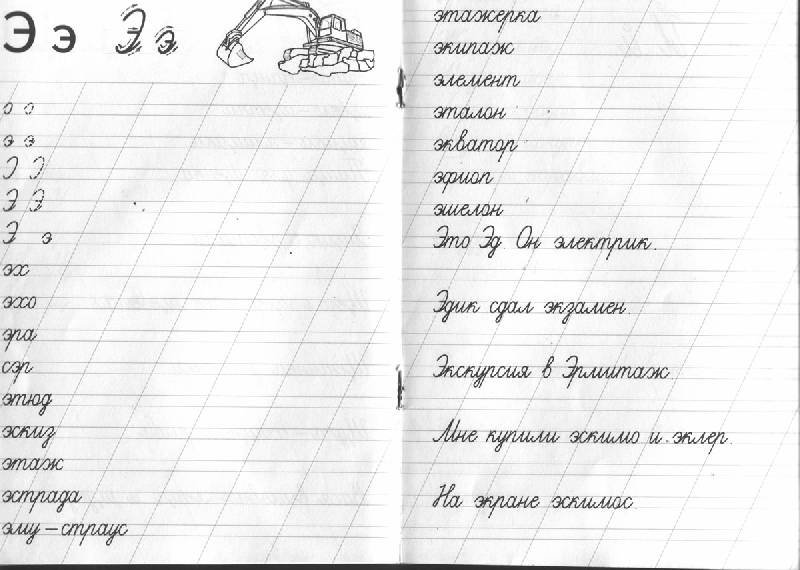 Э э Э э
о о
э э
Э Э
Э Э
Э э
эх
эхо
эра
сэр
этюд
эскиз
этаж
эстрада
эму – страус
этажерка
экипаж
элемент
эталон
экватор
эфиоп
эшелон
Это Эд. Он электрик.
Эдик сдал экзамен.
Экскурсия в Эрмитаж.
Мне купили эскимо и эклер.
На экране эскимос.